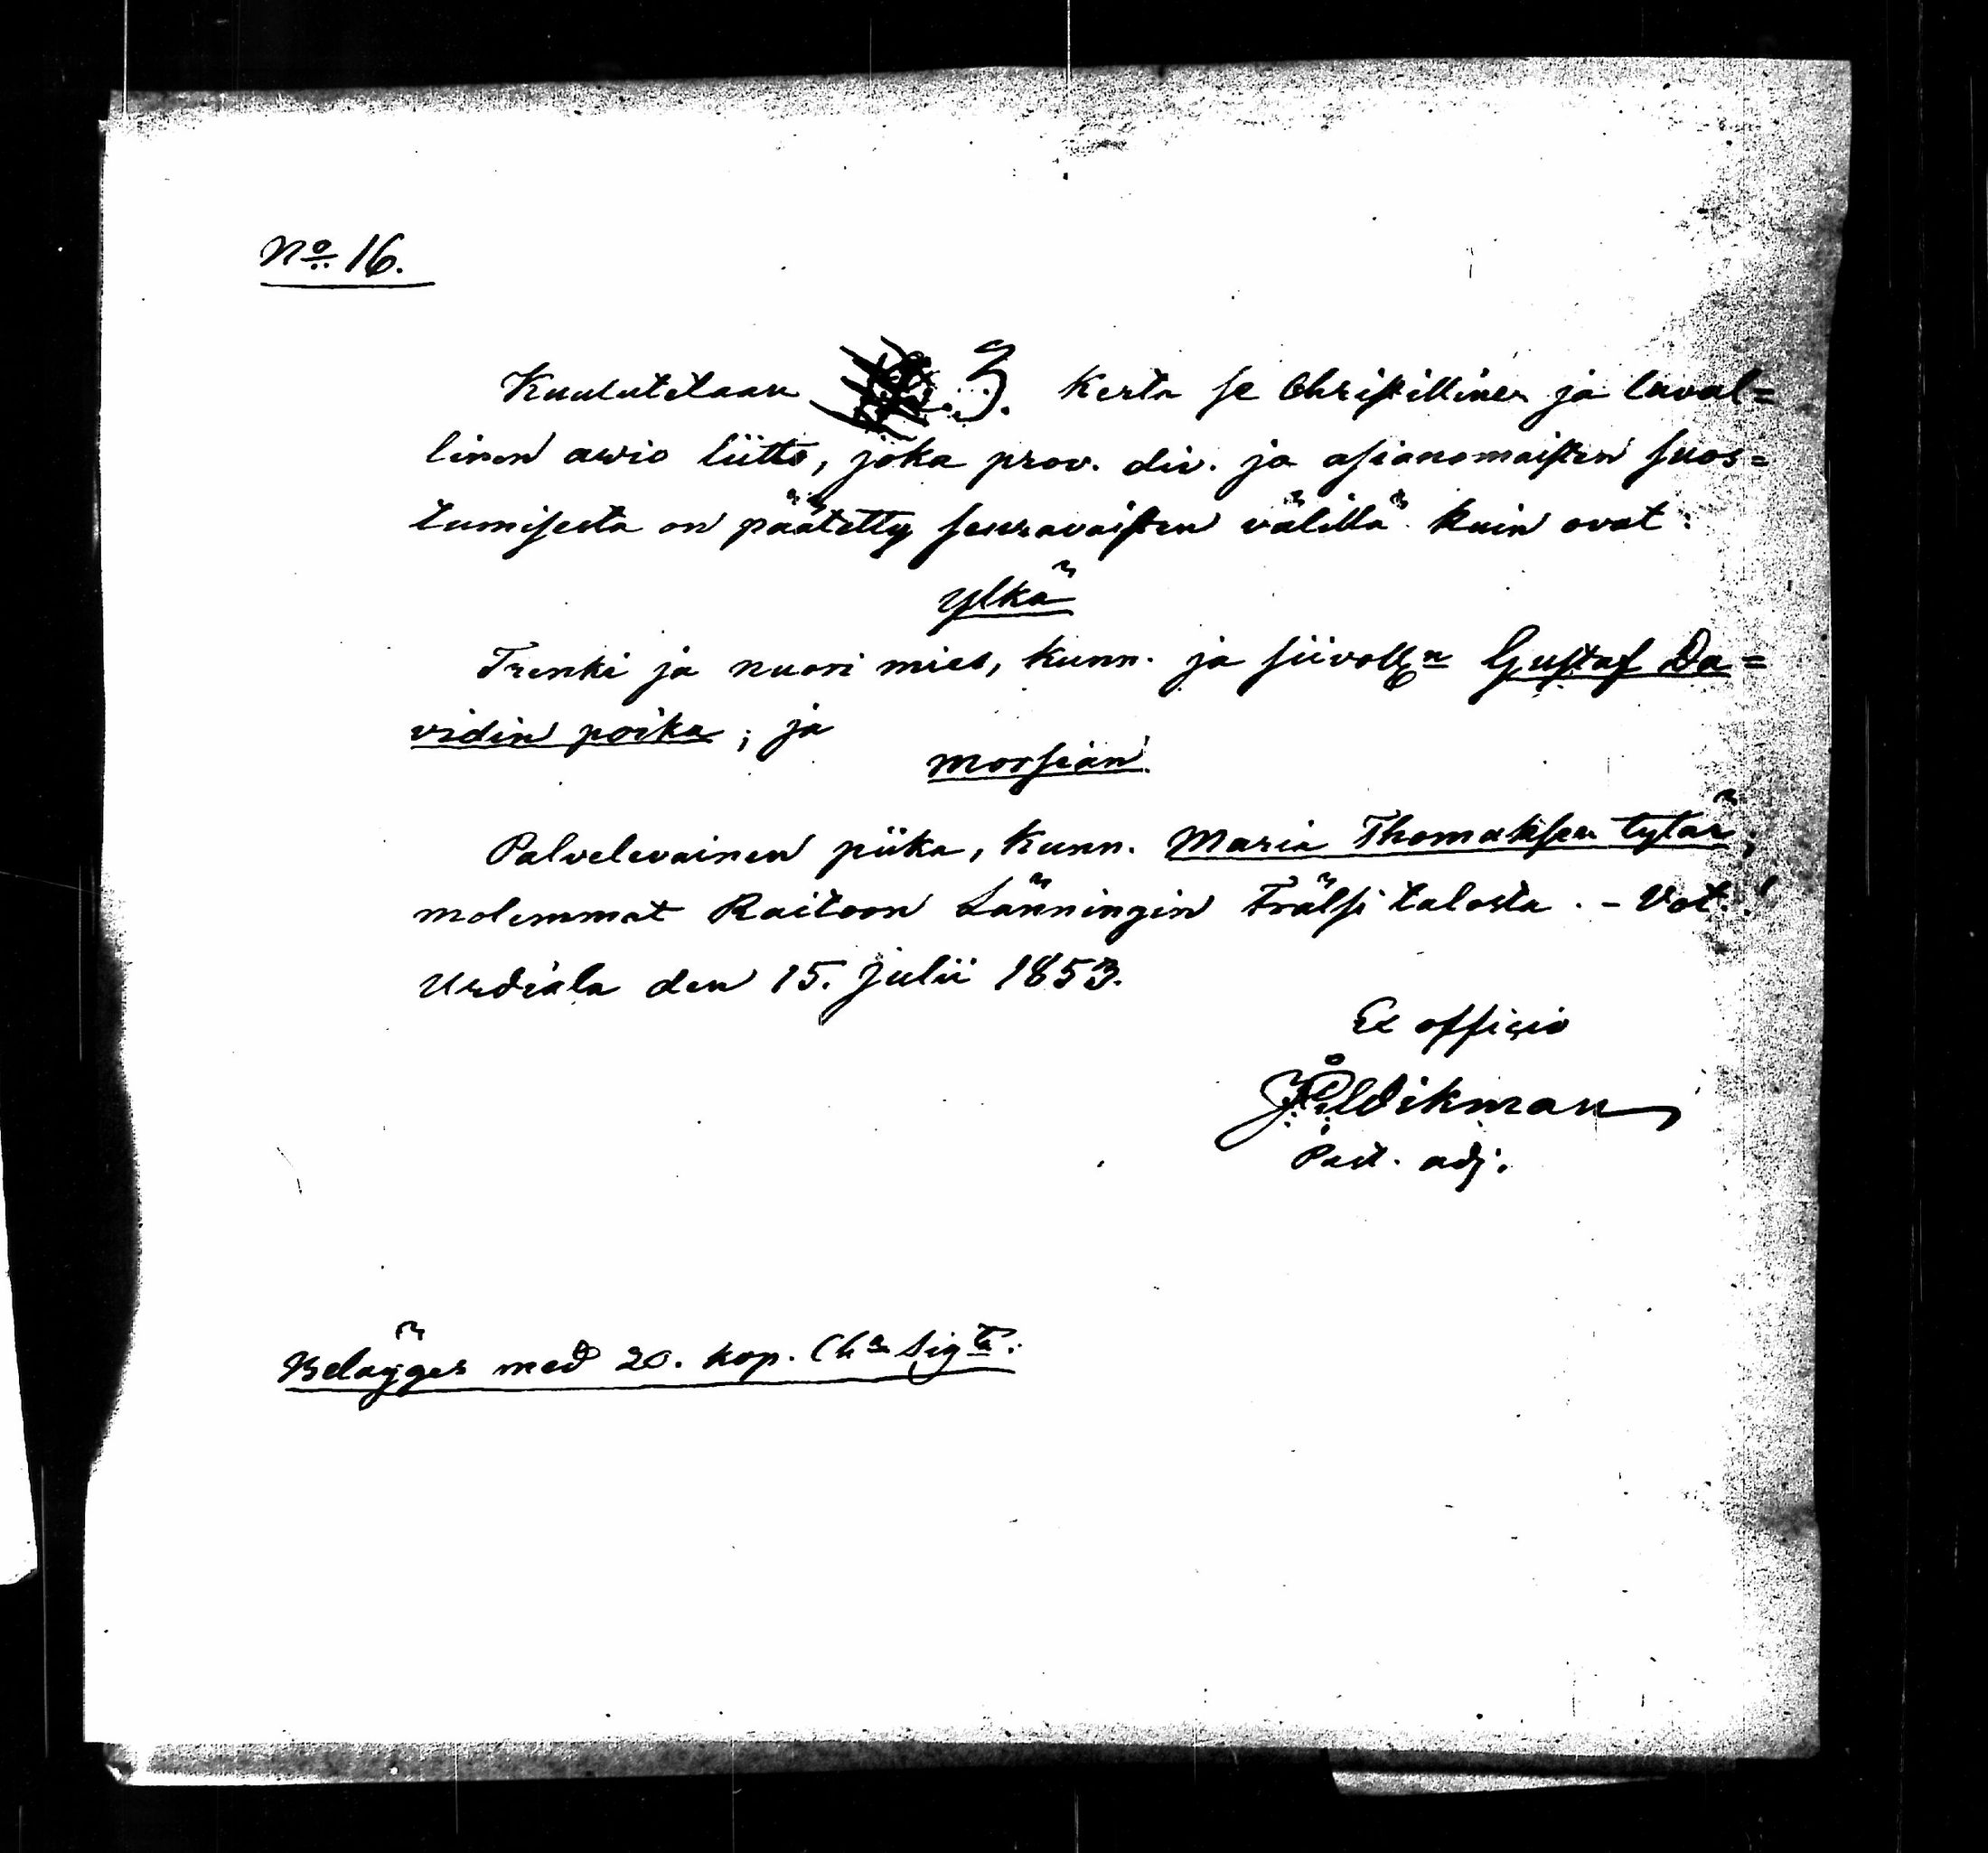 No 16.
Kuulutetaan 3. kerta se Christillinen ja laval=
linen awio liitto, joka prov. div. ja asianomaisten suos=
tumisesta on päätetty seuravaisten välillä kuin ovat:
ylkä
Trenki ja nuori mies, kunn. ja siivoll:n Gustaf Da=
vidin poika; ja
morsian
Palvelevainen piika, kunn. Maria Thomaksen tytär;
molemmat Raitoon Länningin Frälsi talosta. - Vot.!
Urdiala den 15. Julii 1853.
Ex officio
Wikman
Past. adj.
Belägges med 20. kop. Ch:a Sig:ta.